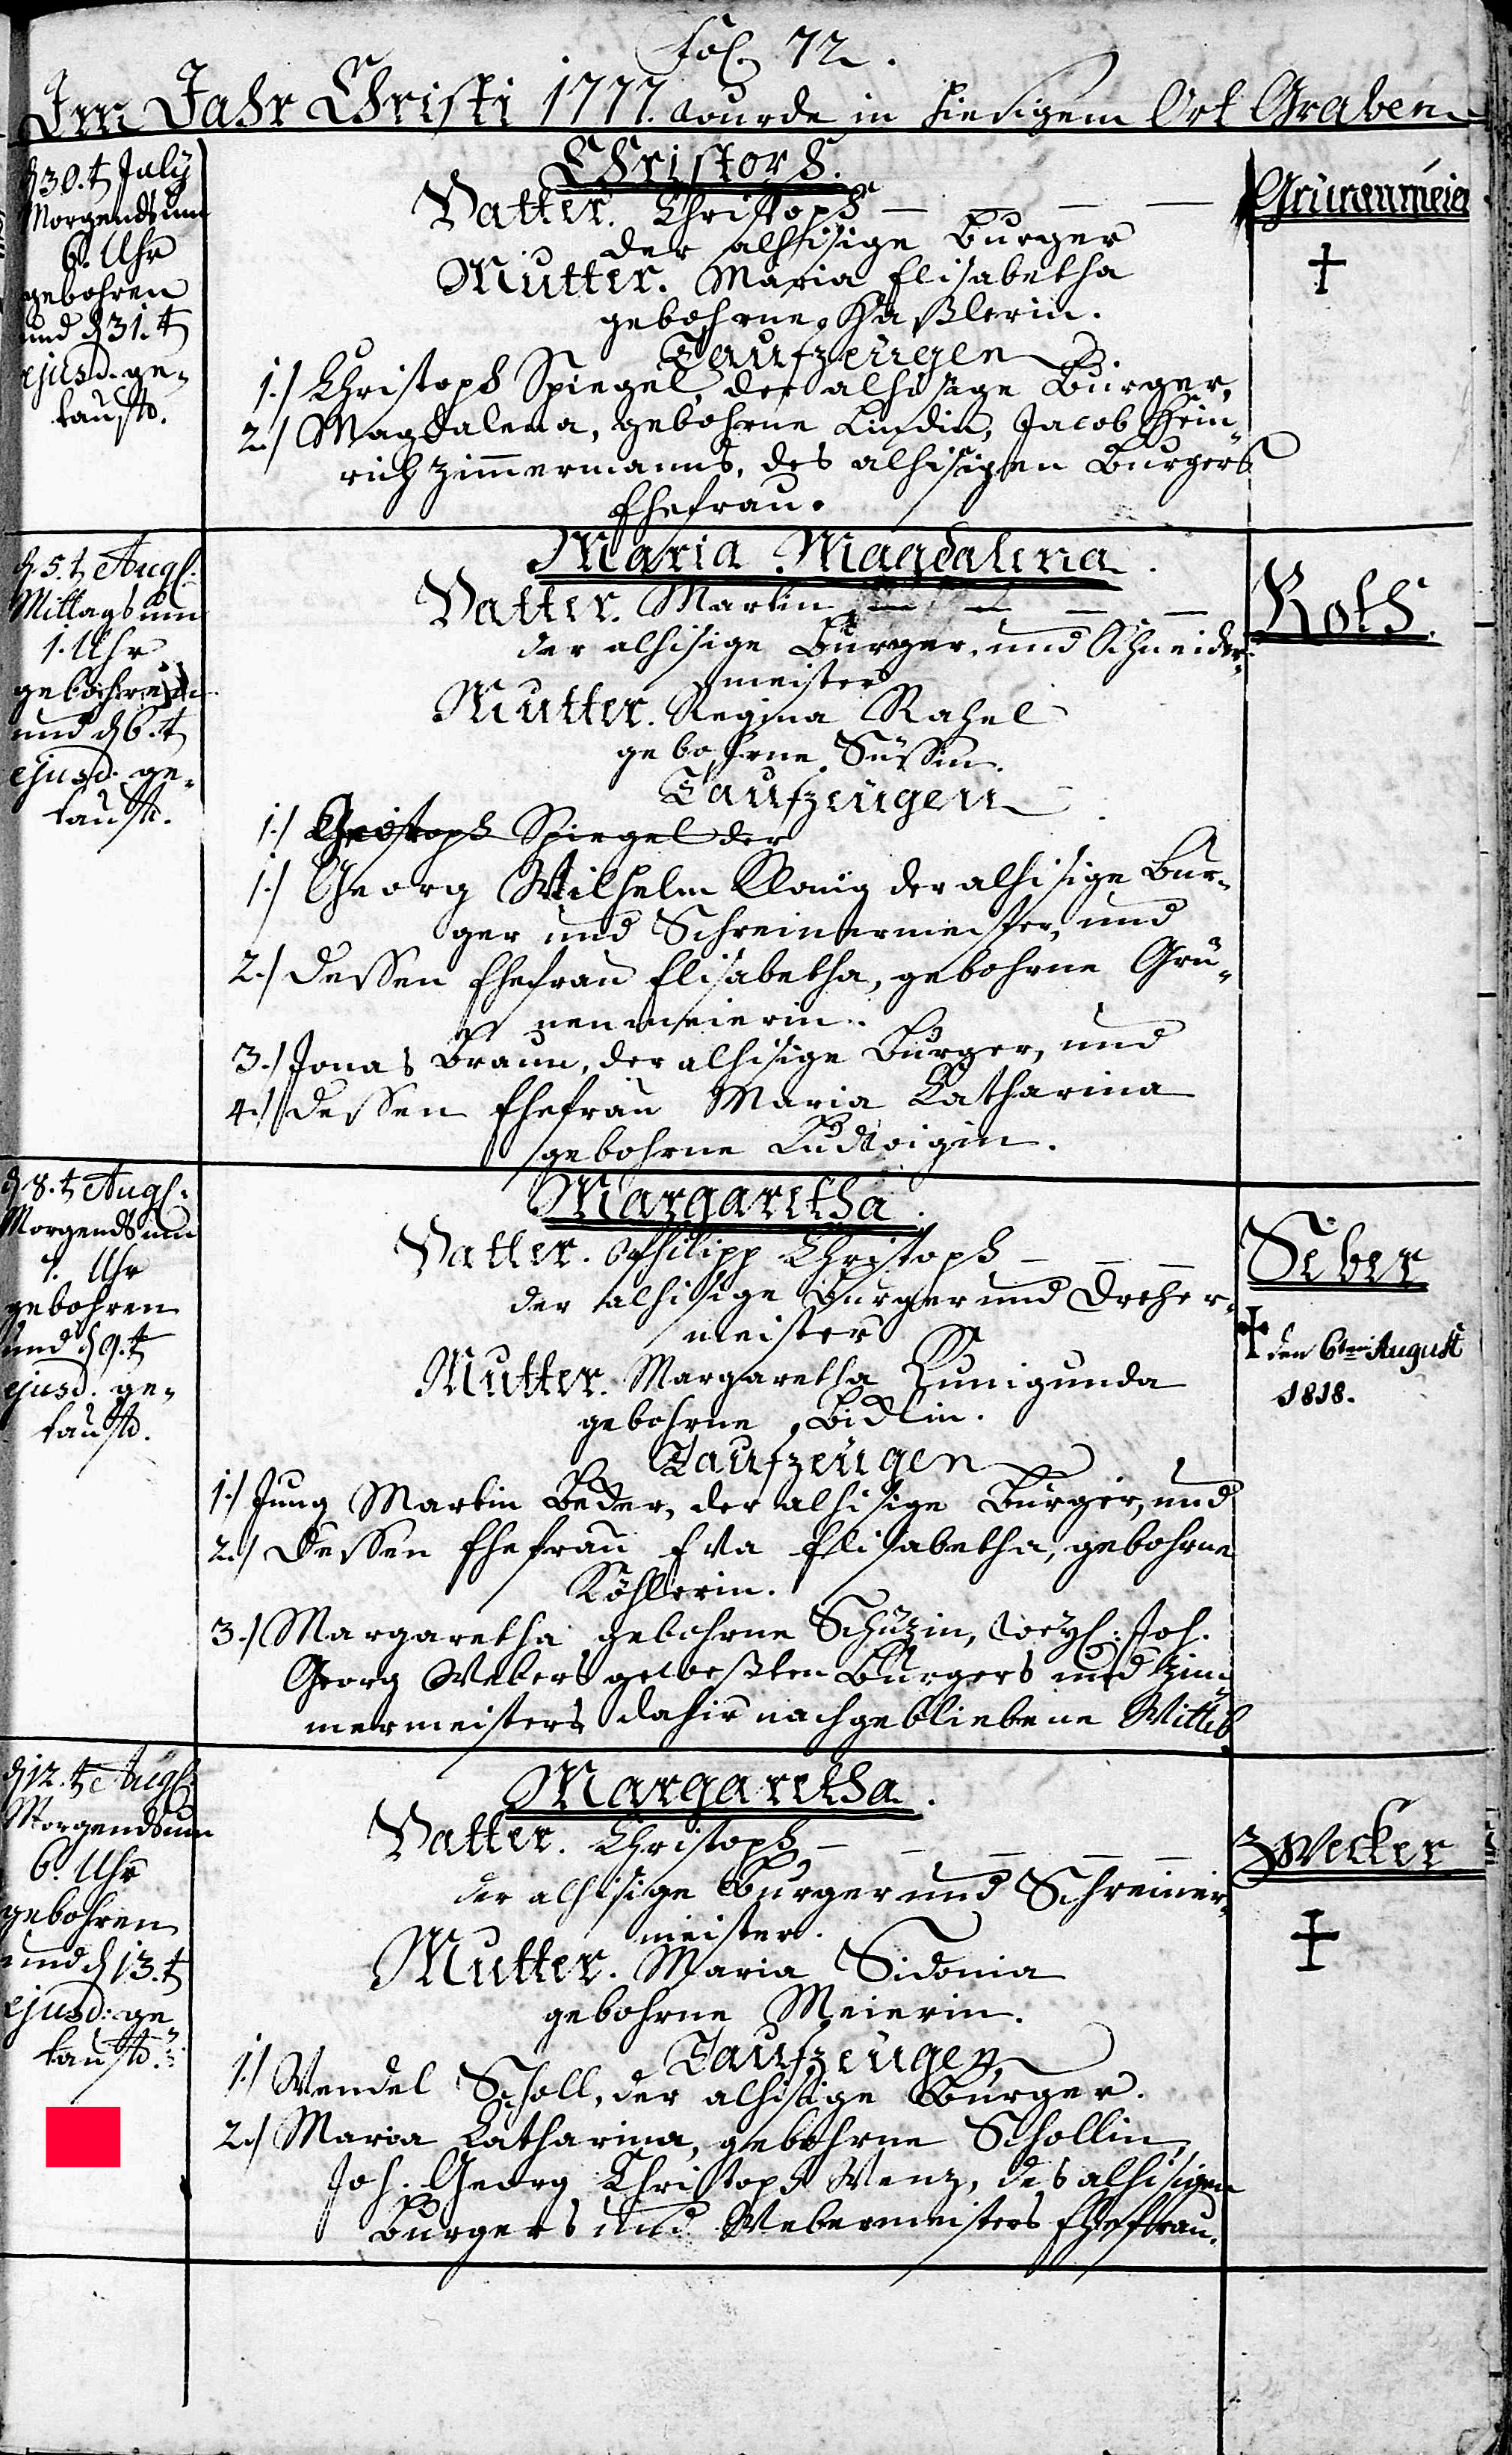 Fol. 72.
Im Jahr Christi 1777. wurde in hiesigem Ort Graben
d 30.t July
Morgends um
6. Uhr
gebohren
und d 31.t
ejusd. ge-
taufft.
Christoph.
Vatter. Christoph — — — —
der alhisige Burger
Mutter. Maria Elisabetha
gebohrne Haßlerin.
Taufzeügen
1.) Christoph Spiegel, der alhisige Burger,
2.) Magdalena, gebohrne Lindin, Jacob Hein-
rich Zimmermanns, des alhisigen Burgers
Ehefrau.
Grünenmeier
†
d. 5.t Augl.
Mittags um
1. Uhr
gebohren
und d 6.t
ejusd. ge-
taufft.
Maria Magdalena.
Vatter. Martin — — — —
der alhisige Burger, und Schneider-
meister
Mutter. Regina Rahel
gebohrne Süssin.
Taufzeügen
1.) Christoph Spiegel der
1.) Georg Wilhelm König der alhisige Bur-
ger und Schreinermeister, und
2.) dessen Ehefrau Elisabetha, gebohrne Grü-
nenmeierin.
3.) Jonas Braun, der alhisige Burger, und
4.) dessen Ehefrau Maria Catharina
gebohrne Ludwigin.
Roth.
d 8.t Augl.
Morgends um
7. Uhr
gebohren
und d 9.t
ejusd. ge-
taufft.
Margaretha.
Vatter. Philipp Christoph — — —
der alhisige Burger und Dreher-
meister
Mutter. Margaretha Kunigunda
gebohrne Bidlin.
Taufzeügen
1.) Jung Martin Beder, der alhisige Burger, und
2.) dessen Ehefrau Eva Elisabetha, gebohrne
Köhlerin.
3.) Margaretha gebohrne Schüzin, weyl: Joh.
Georg Webers gewesten Burgers und Zim-
mermeisters dahir nachgebliebene Wittib.
Seber
† den 6ten August
1818.
d 12.t Augl.
Morgends um
6. Uhr
gebohren
und d 13.t
ejusd: ge-
taufft.
Margaretha.
Vatter. Christoph — — — —
der alhisige Burger und Schreiner-
meister.
Mutter. Maria Sidonia
gebohrne Meierin.
Taufzeügen
1.) Wendel Scholl, der alhisige Burger.
2.) Maria Catharina, gebohrne Schollin,
Joh. Georg Christoph Wenz, des alhisigen
Burgers und Webermeisters Ehefrau.
Zwecker
†